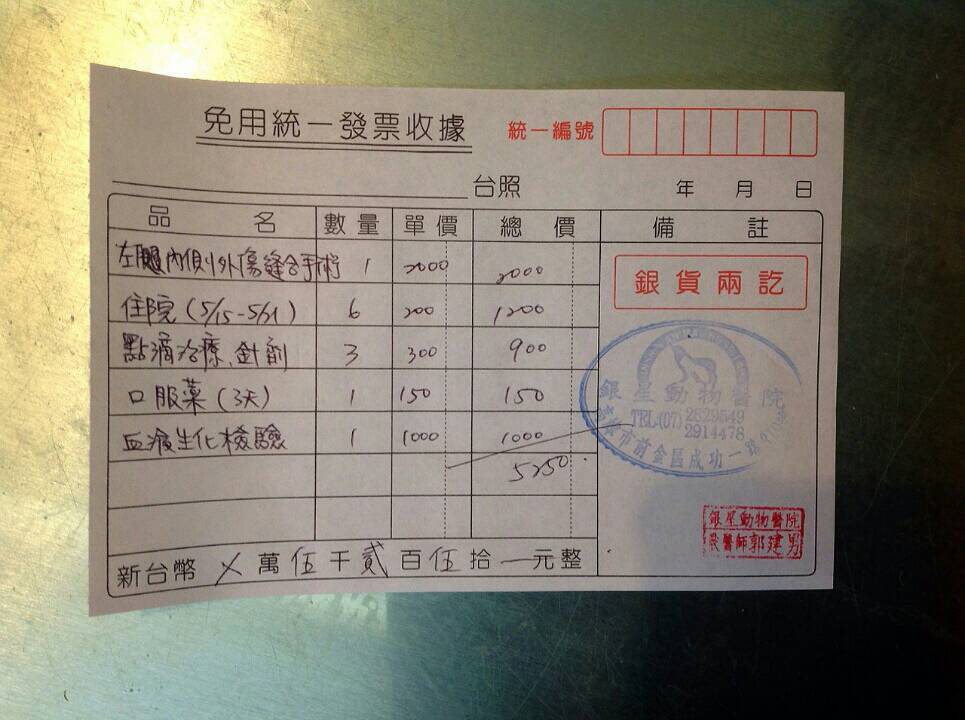 免用統一發票收據
統一編號
台照 年 月 日
品名 數量 單價 總價 備註
左腿內側外傷縫合手術 1 2000 2000
銀貨兩訖
住院(5/15-5/21) 6 200 1200
點滴治療、針劑 3 300 900
口服藥(3天) 1 150 150
血液生化檢驗 1 1000 1000
5250
新台幣 ㄨ 萬 伍 千 貳 百 伍 拾 一 元整
銀星動物醫院
TEL(07)2829549
2914478
市前金區成功一路
銀星動物醫院
獸醫師郭建男